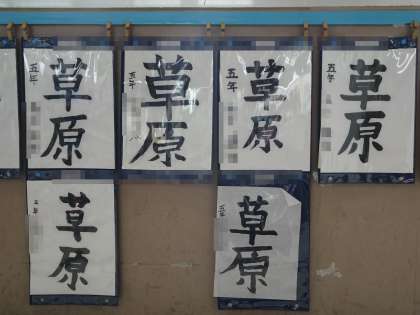 草原
五年
草原
五年
草原
五年
草原
五年
草原
五年
草原
五年